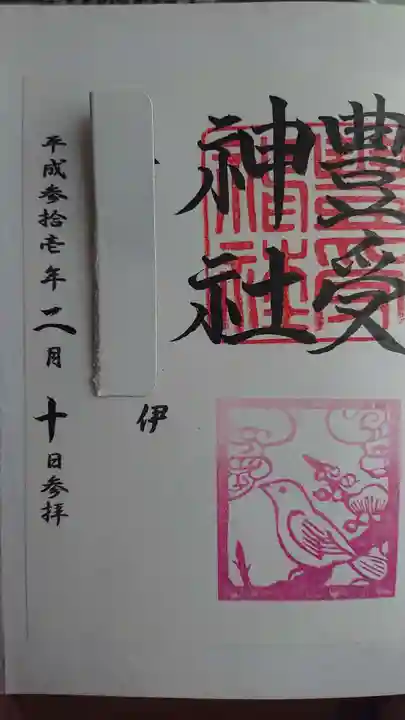 豊受
神社
伊
平成参拾壱年二月十日参拝